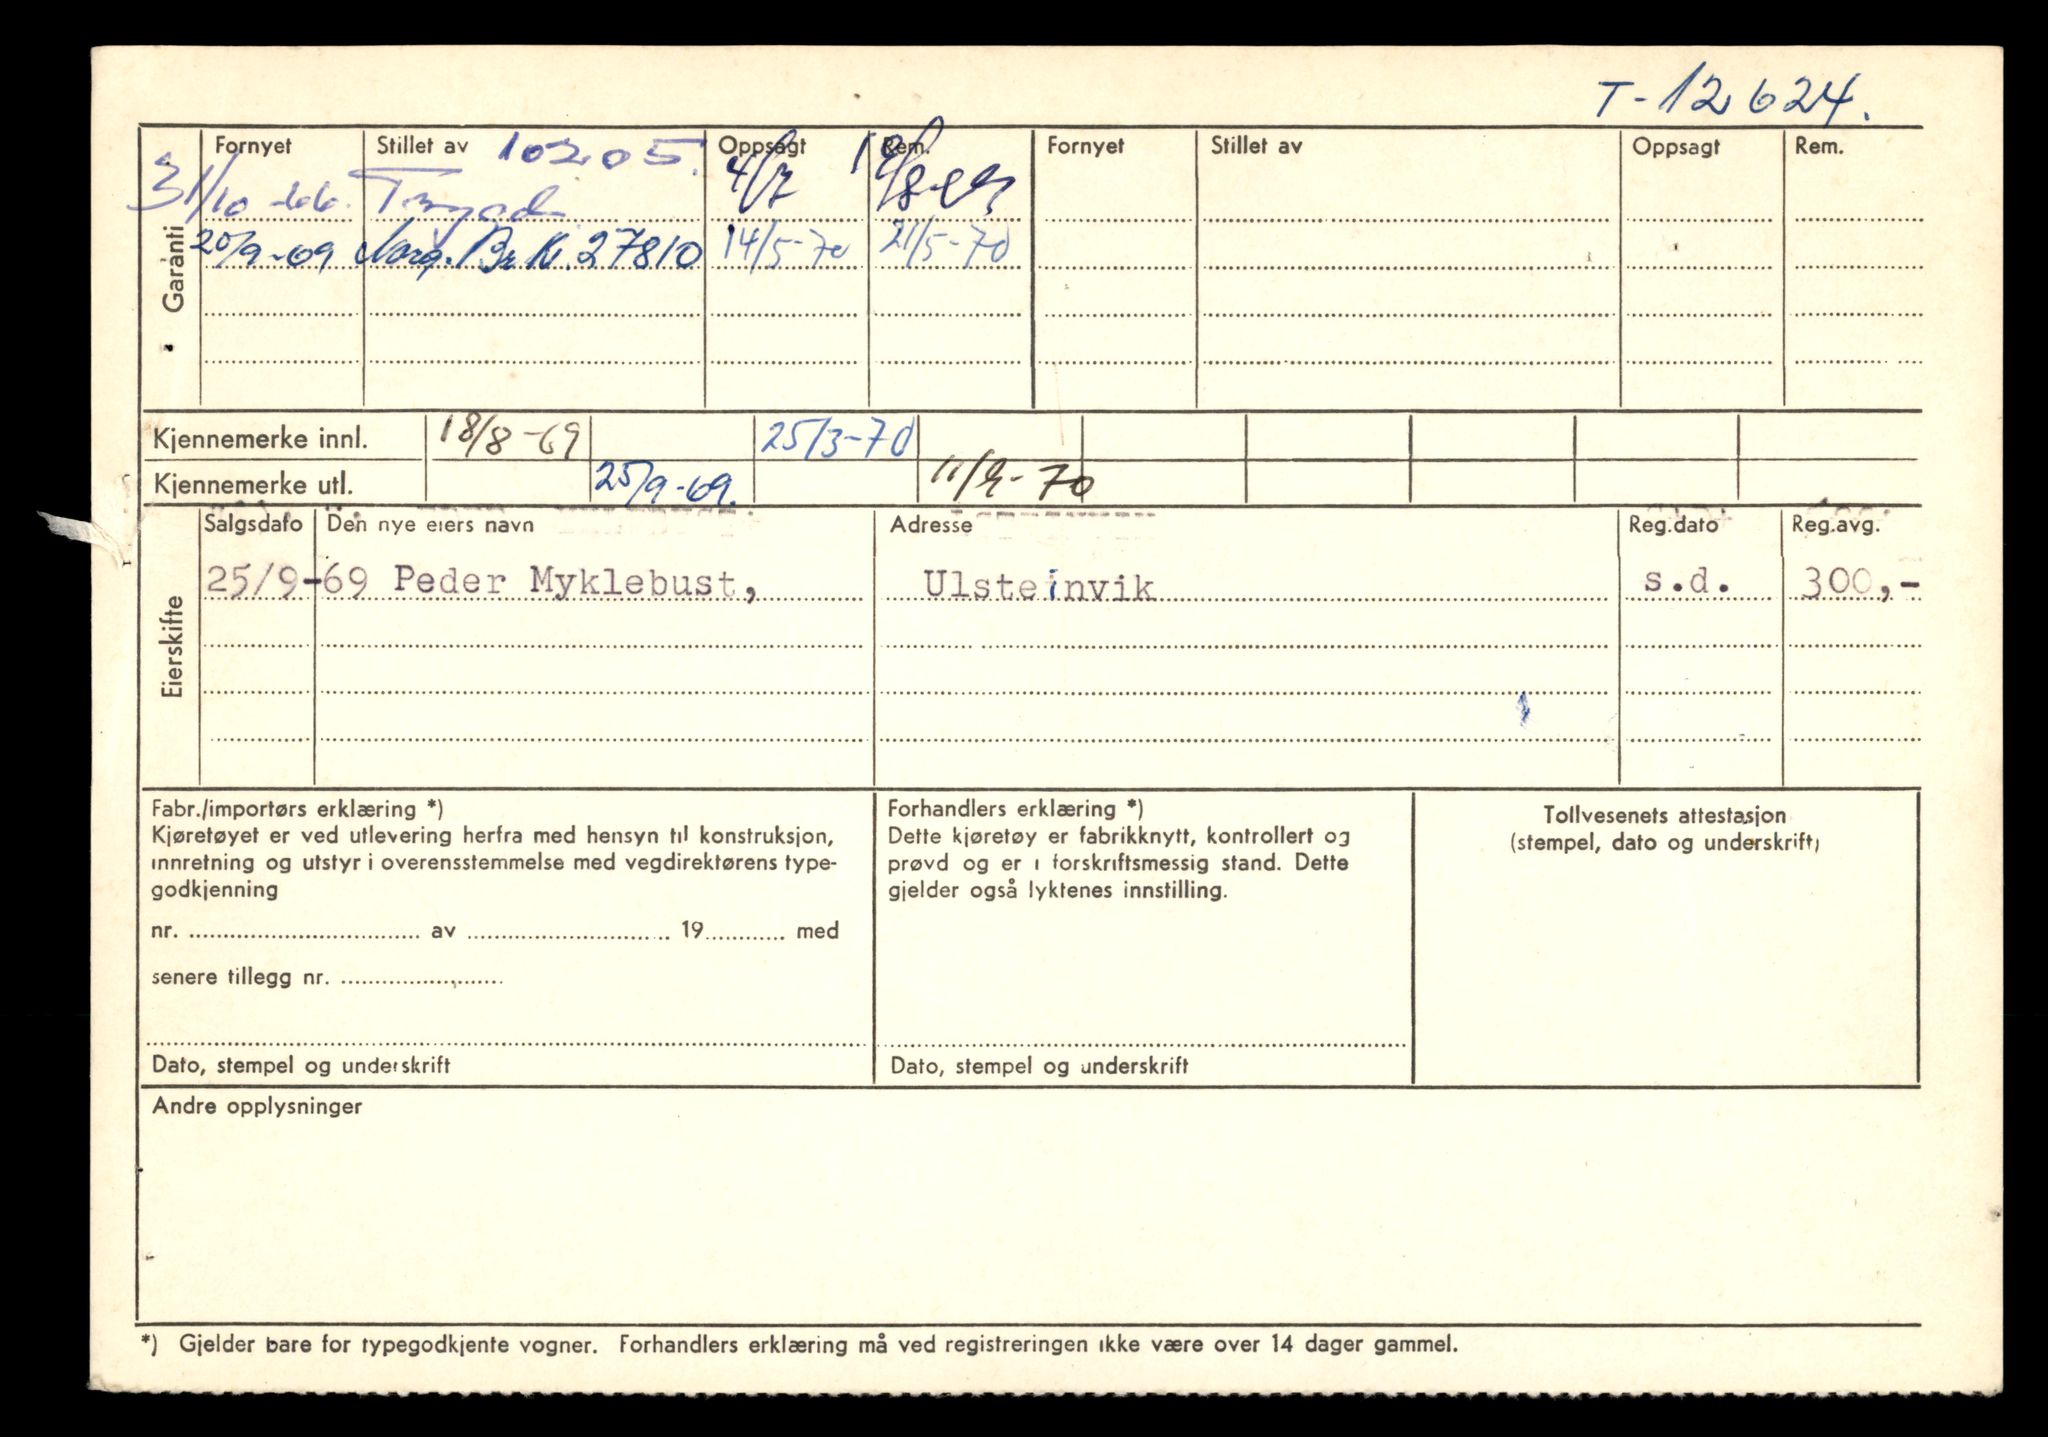 T-12624.
Fornyet Stillet av 10205. Oppsagt Rem. Fornyet Stillet av Oppsagt Rem.
31/10-66. Trygd 4/7
25/9-69 Norg. Br. K. 27810 14/5-70 21/5-70
Garanti
Kjennemerke innl. 18/8-69 25/3-70
Kjennemerke utl. 25/9-69. 11/9-70
Salgsdato Den nye eiers navn Adresse Reg.dato Reg.avg.
25/9-69 Peder Myklebust, Ulsteinvik s.d. 300,-
Eierskifte
Fabr./importørs erklæring *)
Kjøretøyet er ved utlevering herfra med hensyn til konstruksjon,
innretning og utstyr i overensstemmelse med vegdirektørens type-
godkjenning
nr. av 19 med
senere tillegg nr.
Dato, stempel og underskrift
Forhandlers erklæring *)
Dette kjøretøy er fabrikknytt, kontrollert og
prøvd og er i forskriftsmessig stand. Dette
gjelder også lyktenes innstilling.
Dato, stempel og underskrift
Tollvesenets attestasjon
(stempel, dato og underskrift)
Andre opplysninger
*) Gjelder bare for typegodkjente vogner. Forhandlers erklæring må ved registreringen ikke være over 14 dager gammel.